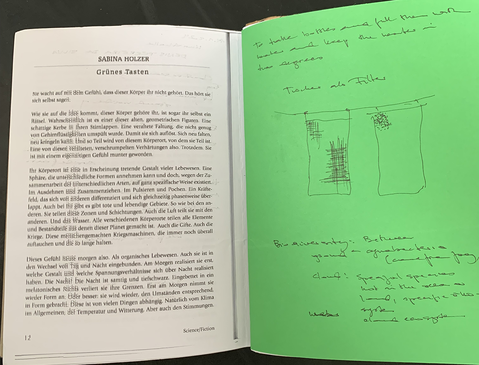 SABINA HOLZER
Grünes Tasten
Sie wacht auf mit dem Gefühl, dass dieser Körper ihr nicht gehört. Das hört sie
sich selbst sagen.
Wie sie auf die kommt, dieser Körper gehöre ihr, ist sogar ihr selbst ein
Rätsel. Wahrscheinlich ist es einer dieser alten, geometrischen Figuren. Eine
schattige Kerbe in ihren Hirnlappen. Eine veraltete Faltung, die nicht genug
von Gehirnflüssigkeiten umspült wurde. Damit sie sich auflöst. Sich neu falten,
neu kringeln kann. Und so Teil wird von diesem Körperort, von dem sie Teil ist.
Eine von diesen verschrumpelten Verhärtungen also. Trotzdem. Sie
ist mit einem eigenartigen Gefühl munter geworden.
Ihr Körperort ist eine in Erscheinung tretende Gestalt vieler Lebewesen. Eine
Sphäre, die unterschiedliche Formen annehmen kann und doch, wegen der Zu-
sammenarbeit der unterschiedlichen Arten, auf ganz spezifische Weise existiert.
Im Ausdehnen und Zusammenziehen. Im Pulsieren und Pochen. Ein Kräfte-
feld, das sich von anderen differenziert und sich gleichzeitig phasenweise über-
lappt. Auch bei ihr gibt es gibt tote und lebendige Gebiete. So wie bei den an-
deren. Sie teilen diese Zonen und Schichtungen. Auch die Luft teilt sie mit den
anderen. Und das Wasser. Alle verschiedenen Körperorte teilen alle Elemente
und Bestandteile aus denen dieser Planet gemacht ist. Auch die Gifte. Auch die
Kriege. Diese menschengemachten Kriegsmaschinen, die immer noch überall
auftauchen und die so lange halten.
Dieses Gefühl heute morgen also. Als organisches Lebewesen. Auch sie ist in
den Wechsel von Tag und Nacht eingebunden. Am Morgen realisiert sie erst,
welche Gestalt und welche Spannungsverhältnisse sich über Nacht realisiert
haben. Die Nacht! Die Nacht ist samtig und tiefschwarz. Eingebettet in ein
melatonisches Nichts verliert sie ihre Grenzen. Erst am Morgen nimmt sie
wieder Form an. Oder besser: sie wird wieder, den Umständen entsprechend,
in Form gebracht. Diese ist von vielen Dingen abhängig. Natürlich vom Klima
im Allgemeinen, der Temperatur und Witterung. Aber auch den Stimmungen.
12
Science/Fiction
To take bottles and fill them with
water and keep the water
two degrees
Tücher als Filter
Between
ground
cloud: special species